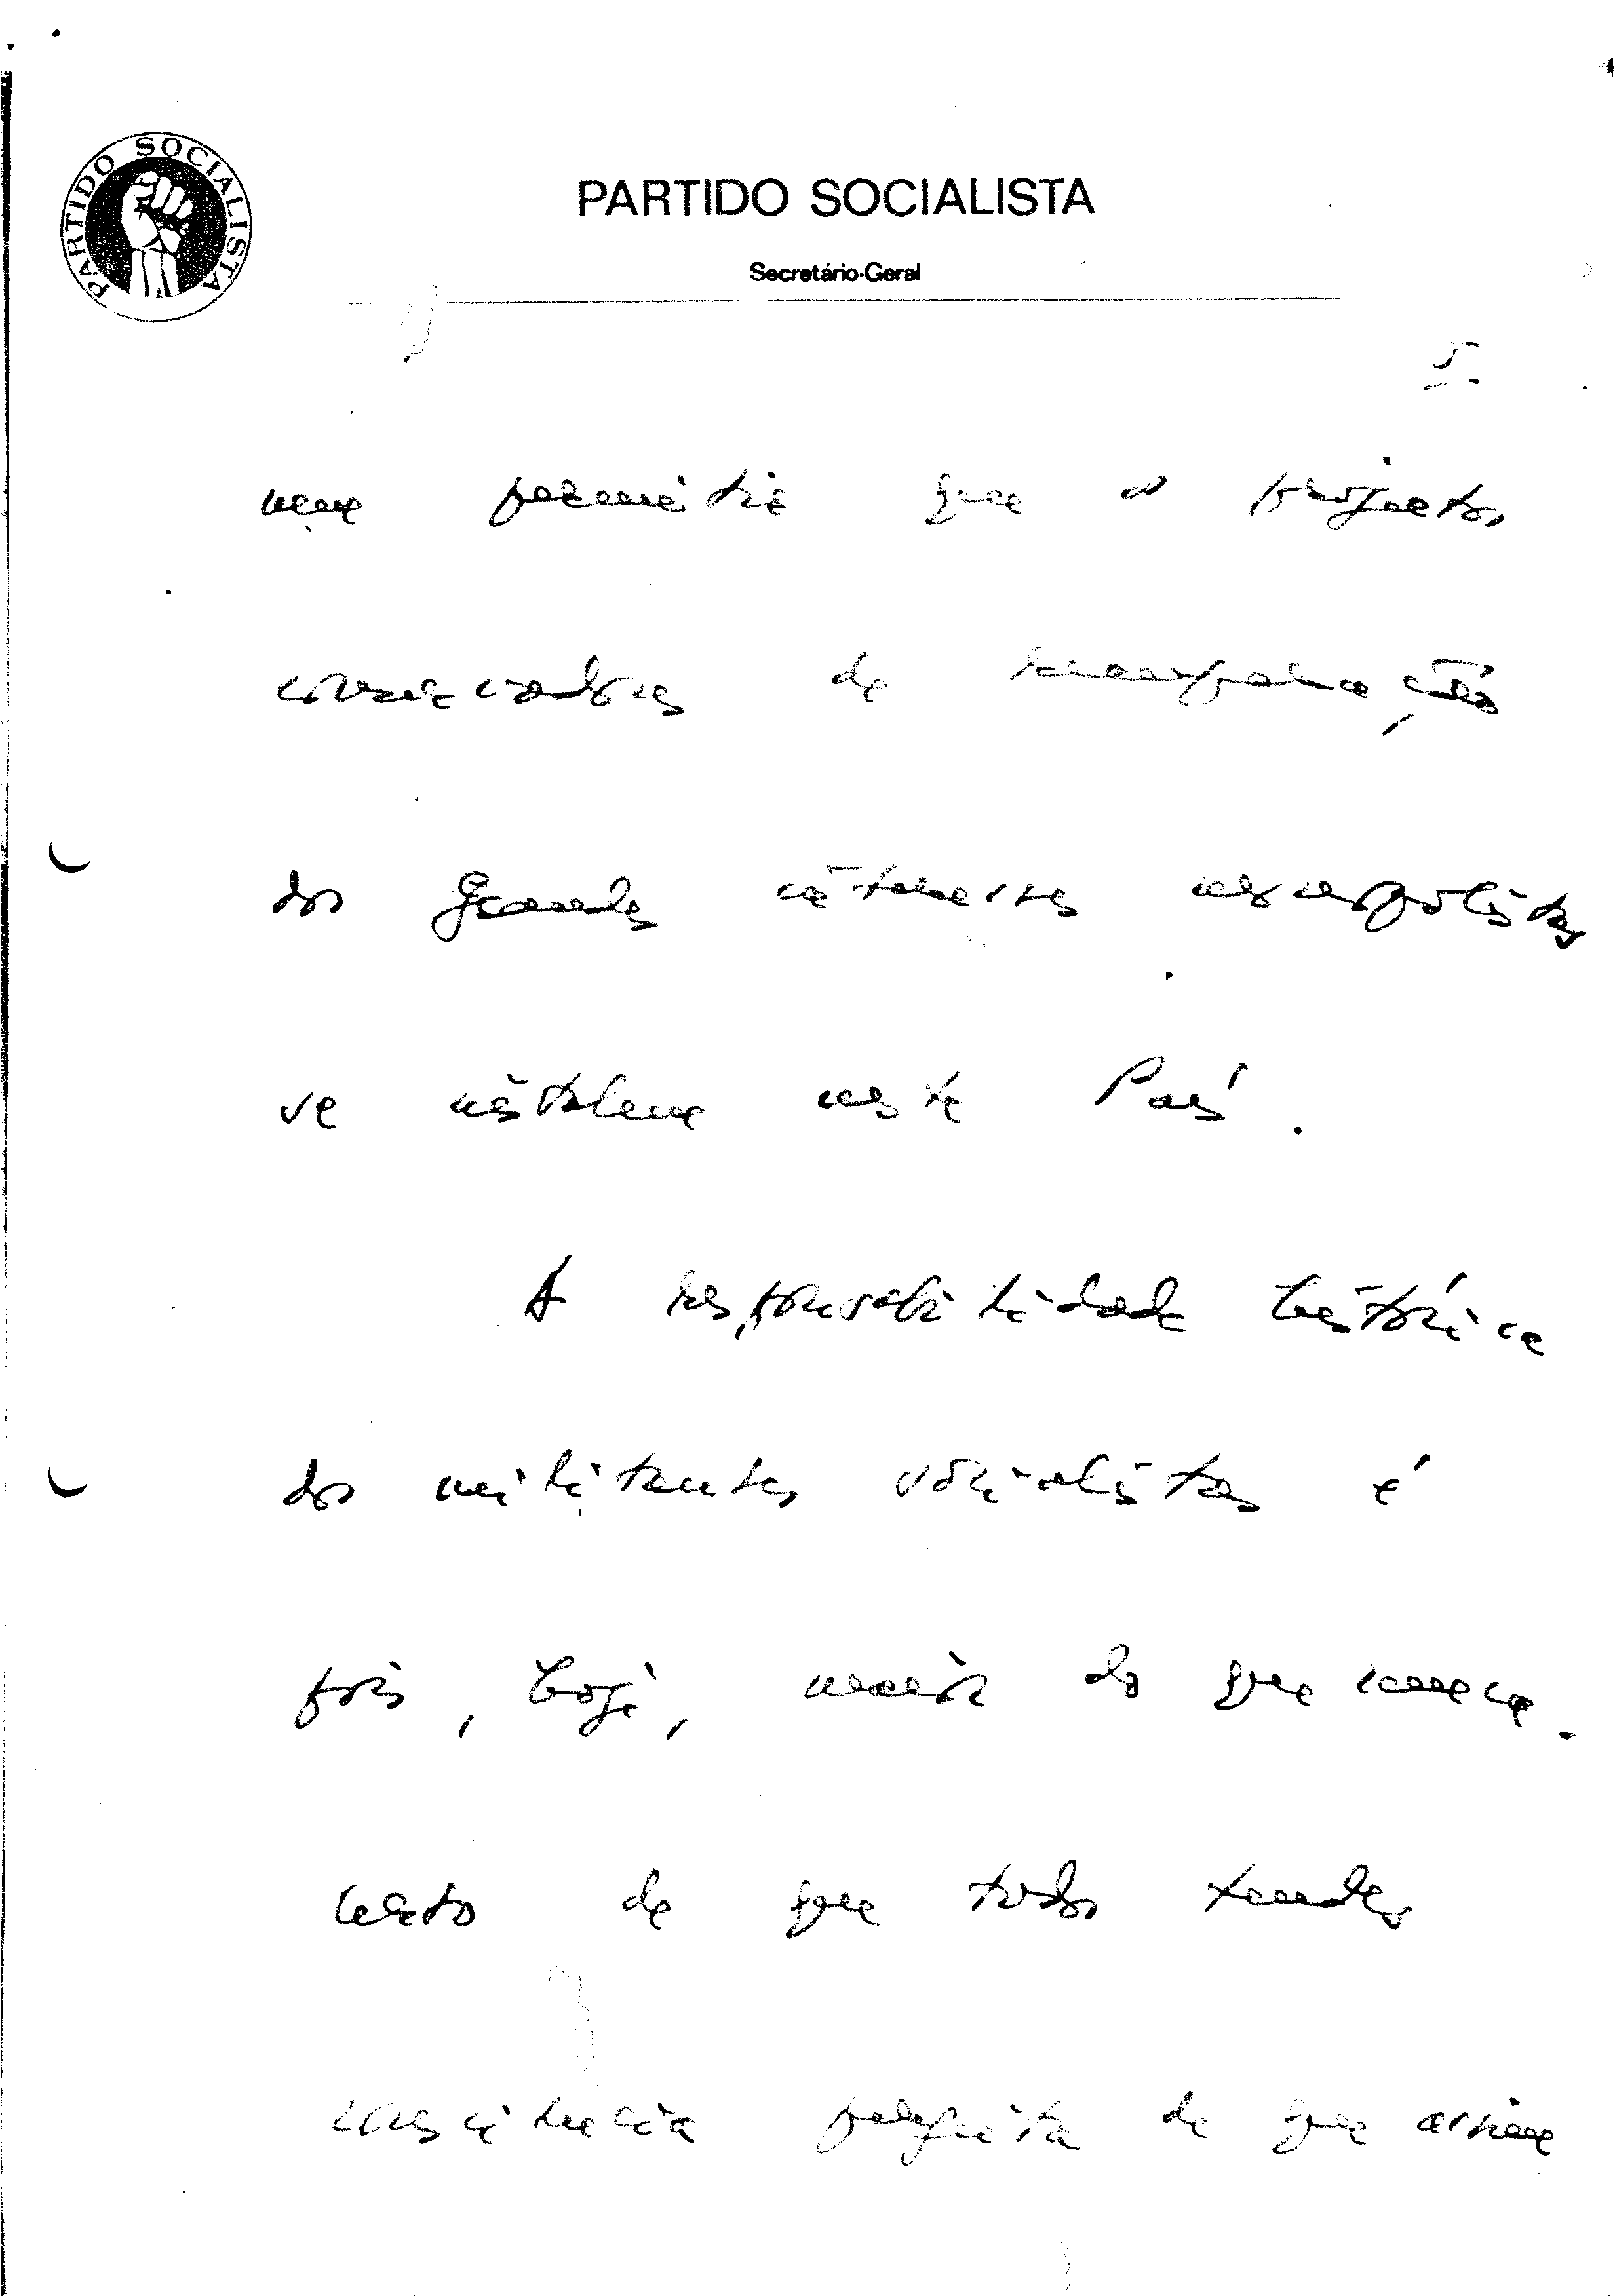 PARTIDO SOCIALISTA
PARTIDO SOCIALISTA
Secretário-Geral
5.
nem permitir que o projecto,
conservador de recuperação
dos grandes interesses monopolistas
se instale neste País.
A responsabilidade histórica
dos militantes socialistas é
pois, hoje, maior do que nunca.
Certo de que todos tendes
consciência perfeita de que assim